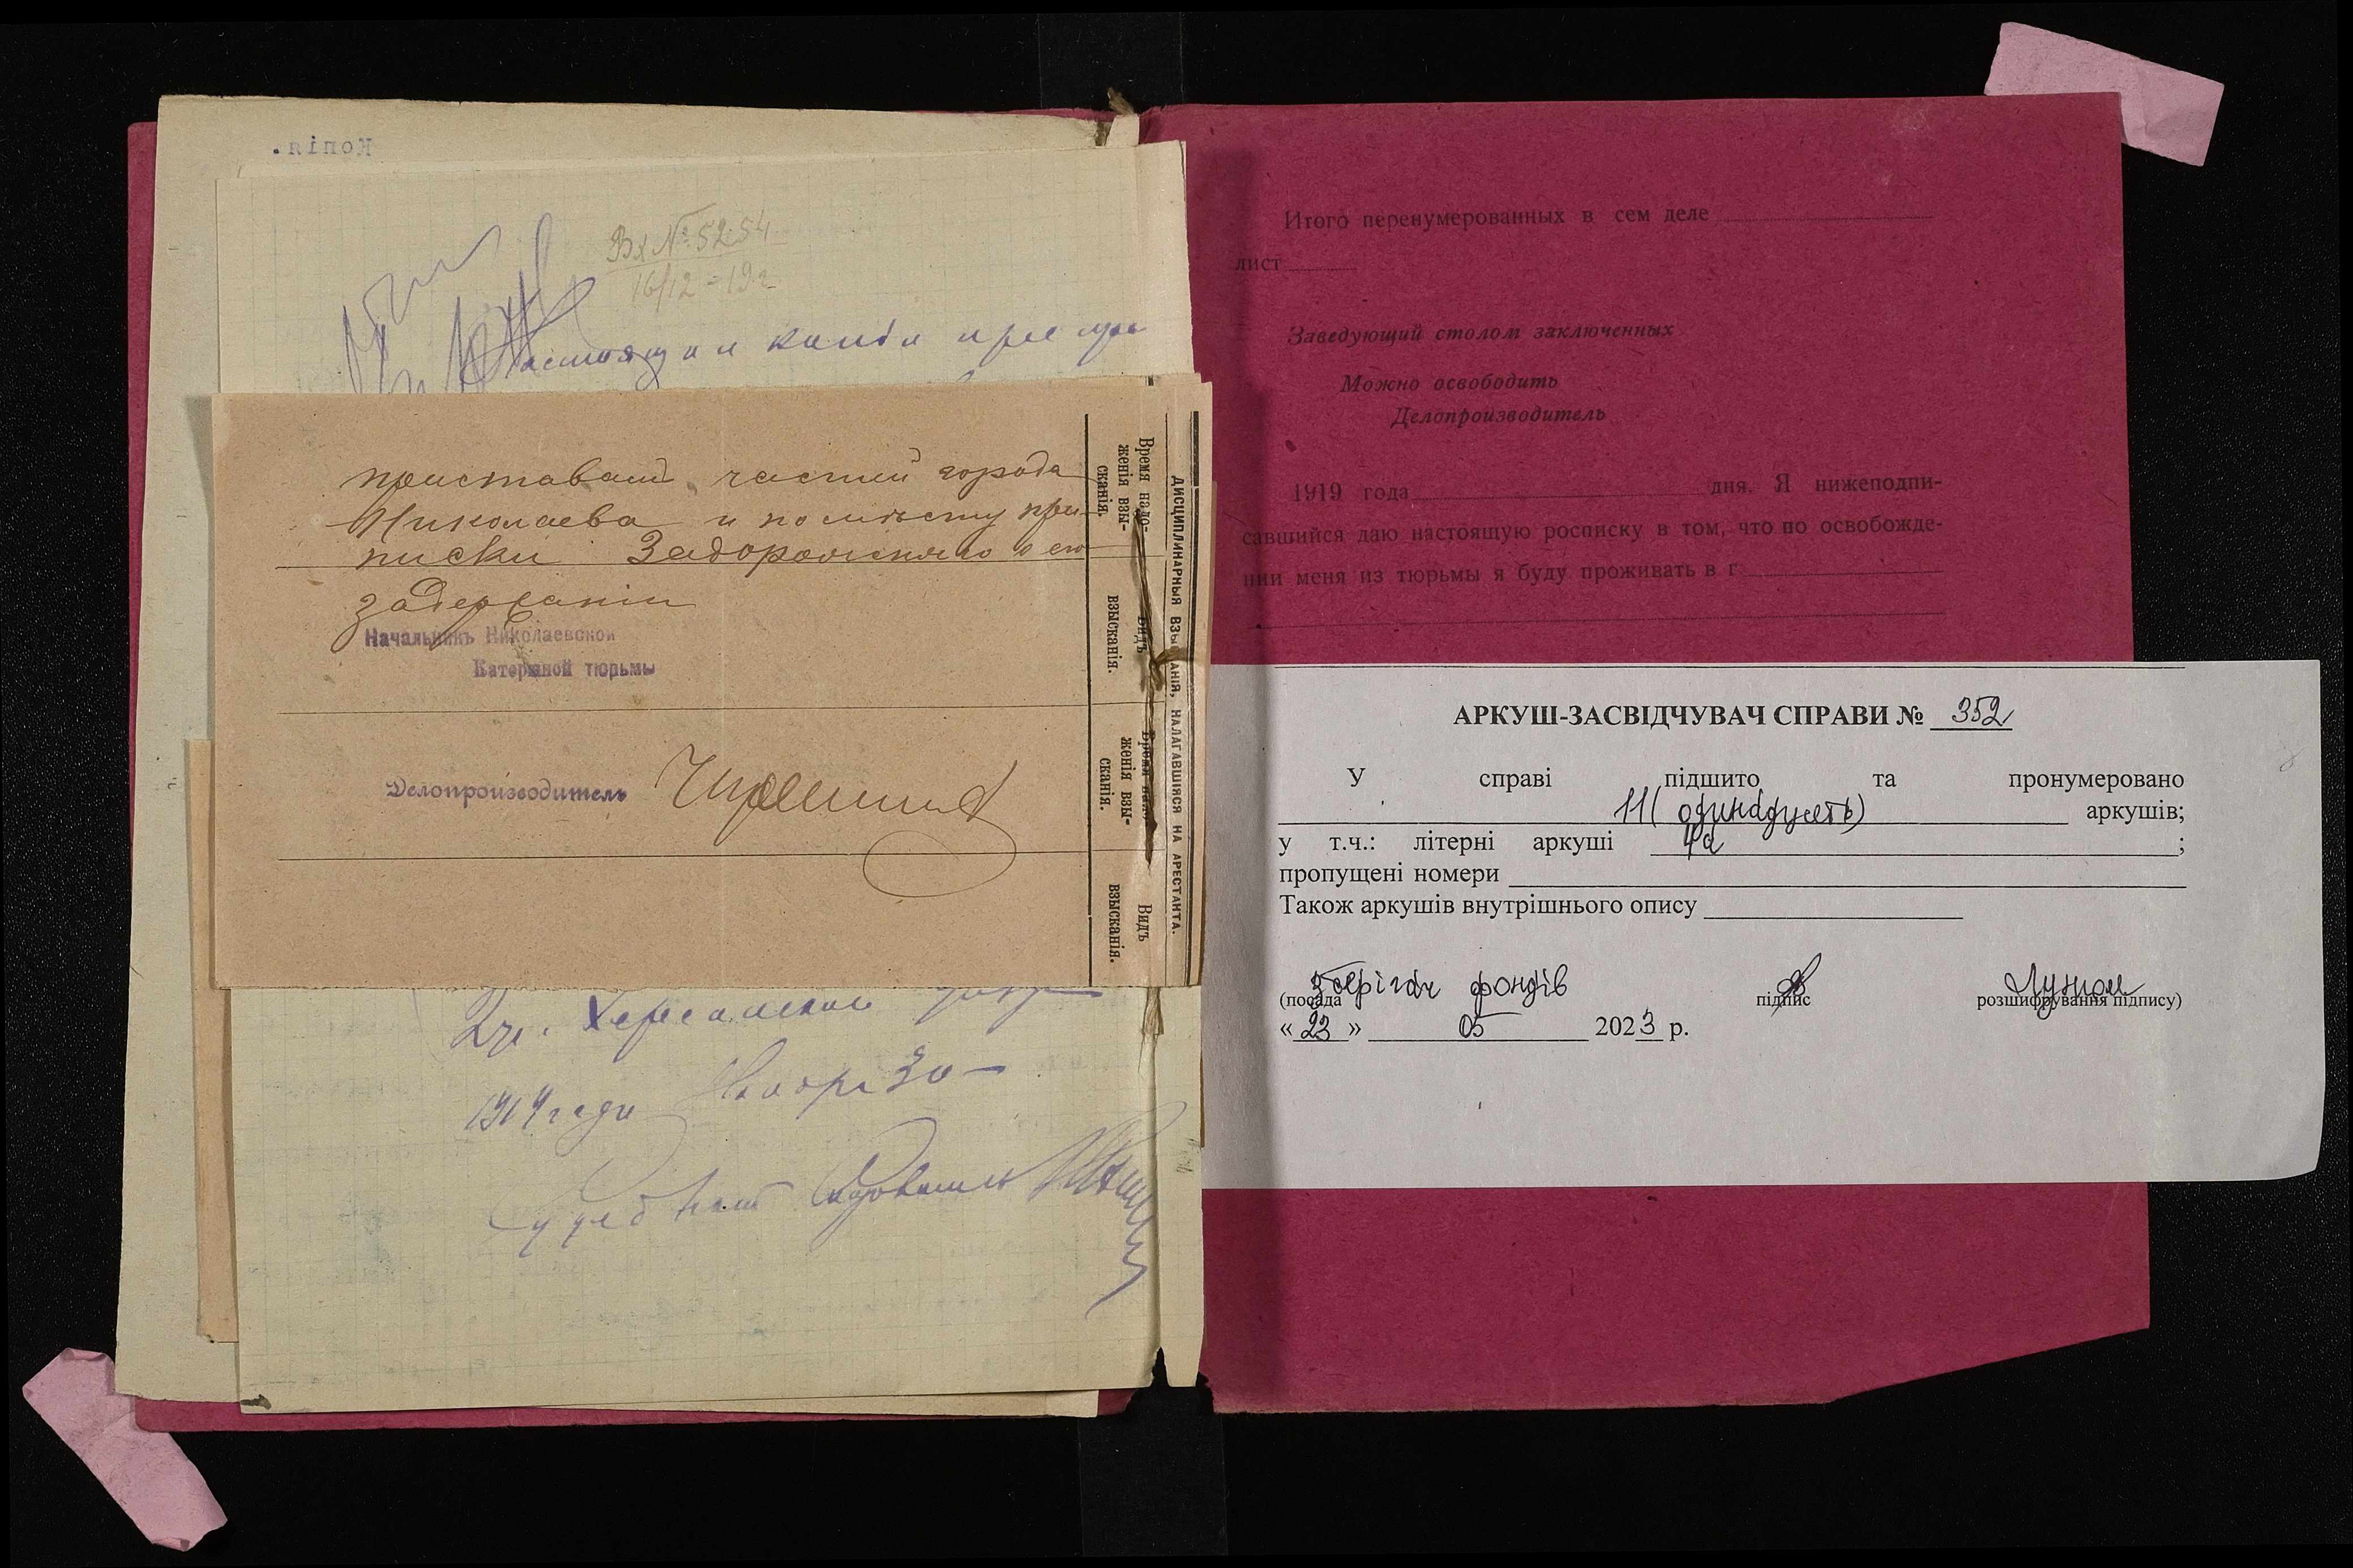 Копія.
Вх № 5254
16/12 - 19 г.
Настоящая копия
приставам частей города
Николаева и по месту при-
писки Задорожняго о его
задержании
Начальникъ Николаевской
Каторжной тюрьмы
Делопроизводитель
ДИСЦИПЛИНАРНЫЯ ВЗЫСКАНІЯ, НАЛАГАВШІЯСЯ НА АРЕСТАНТА.
Время нало-
женія взы-
сканія.
Видъ
взысканія.
Время нало-
женія взы-
сканія.
Видъ
взысканія.
Херсонской
1919 года Ноября 30
Судебный
Итого перенумерованных в сем деле
лист
Заведующий столом заключенных
Можно освободить
Делопроизводитель
1919 года дня. Я нижеподпи-
савшийся даю настоящую росписку в том, что по освобожде-
нии меня из тюрьмы я буду проживать в г
АРКУШ-ЗАСВІДЧУВАЧ СПРАВИ № 352
У справі підшито та пронумеровано
11 (одинадцять) аркушів;
у т.ч.: літерні аркуші 4а ;
пропущені номери
Також аркушів внутрішнього опису
Зберігач фондів
(посада підпис розшифрування підпису)
« 23 » 05 2023 р.